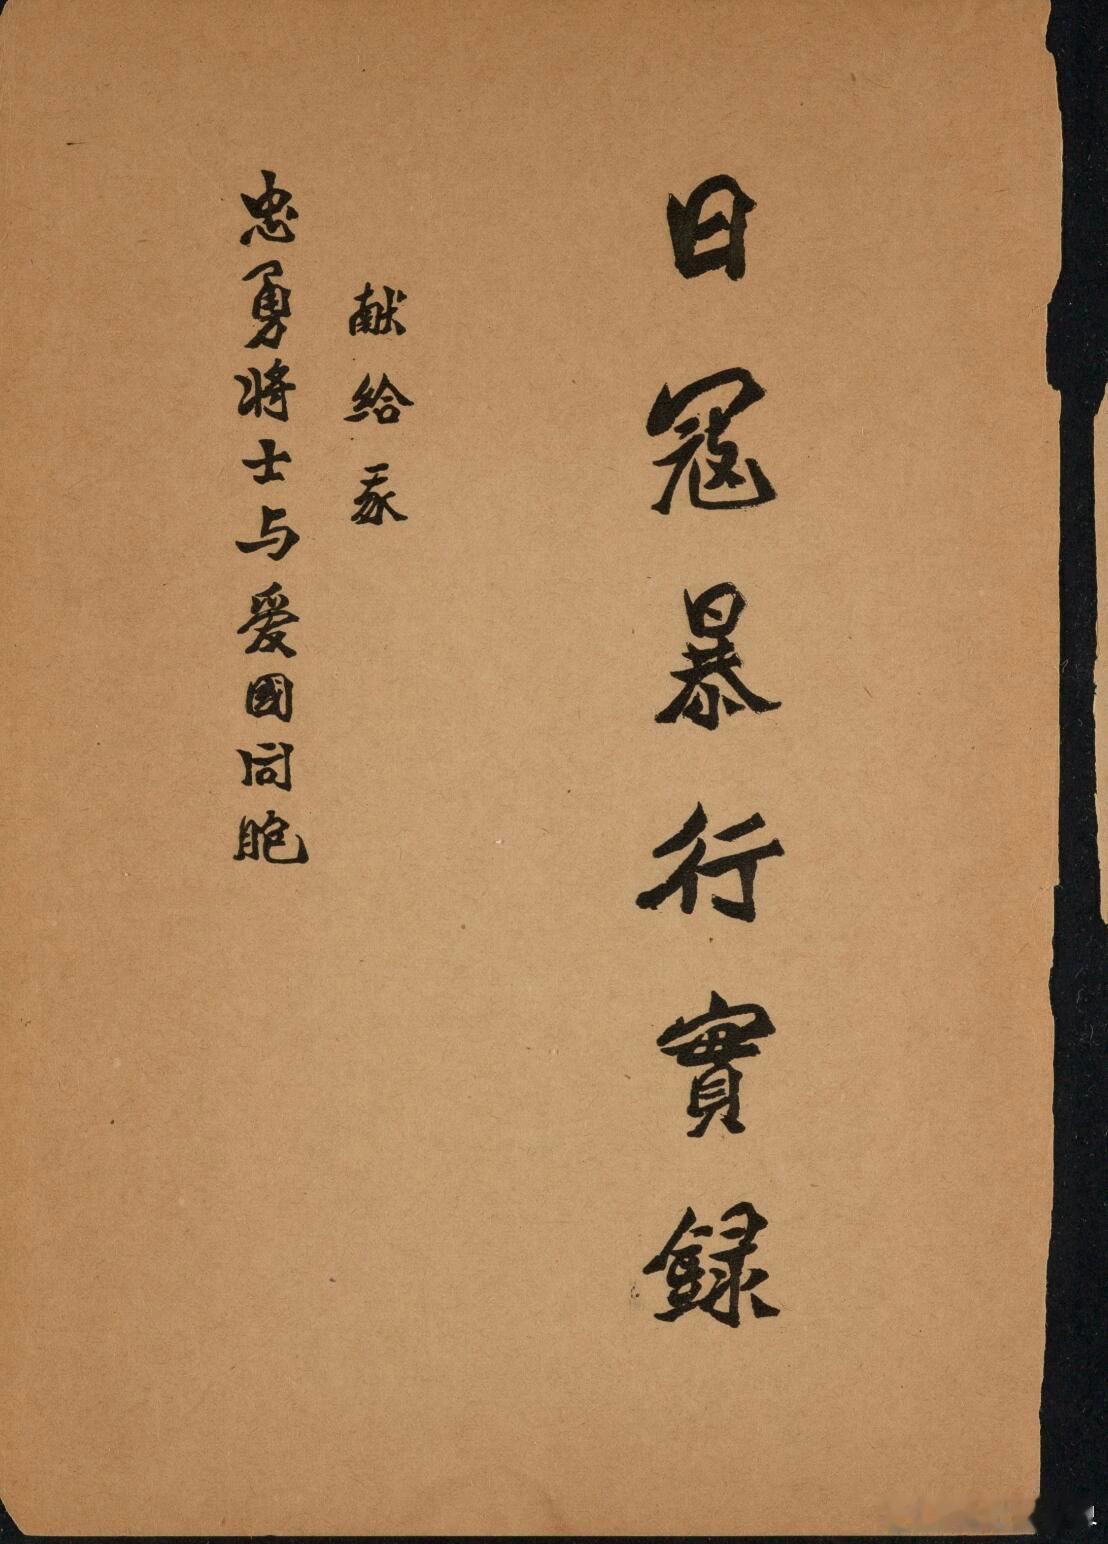 日冦暴行實録
献給我
忠勇将士与爱國同胞